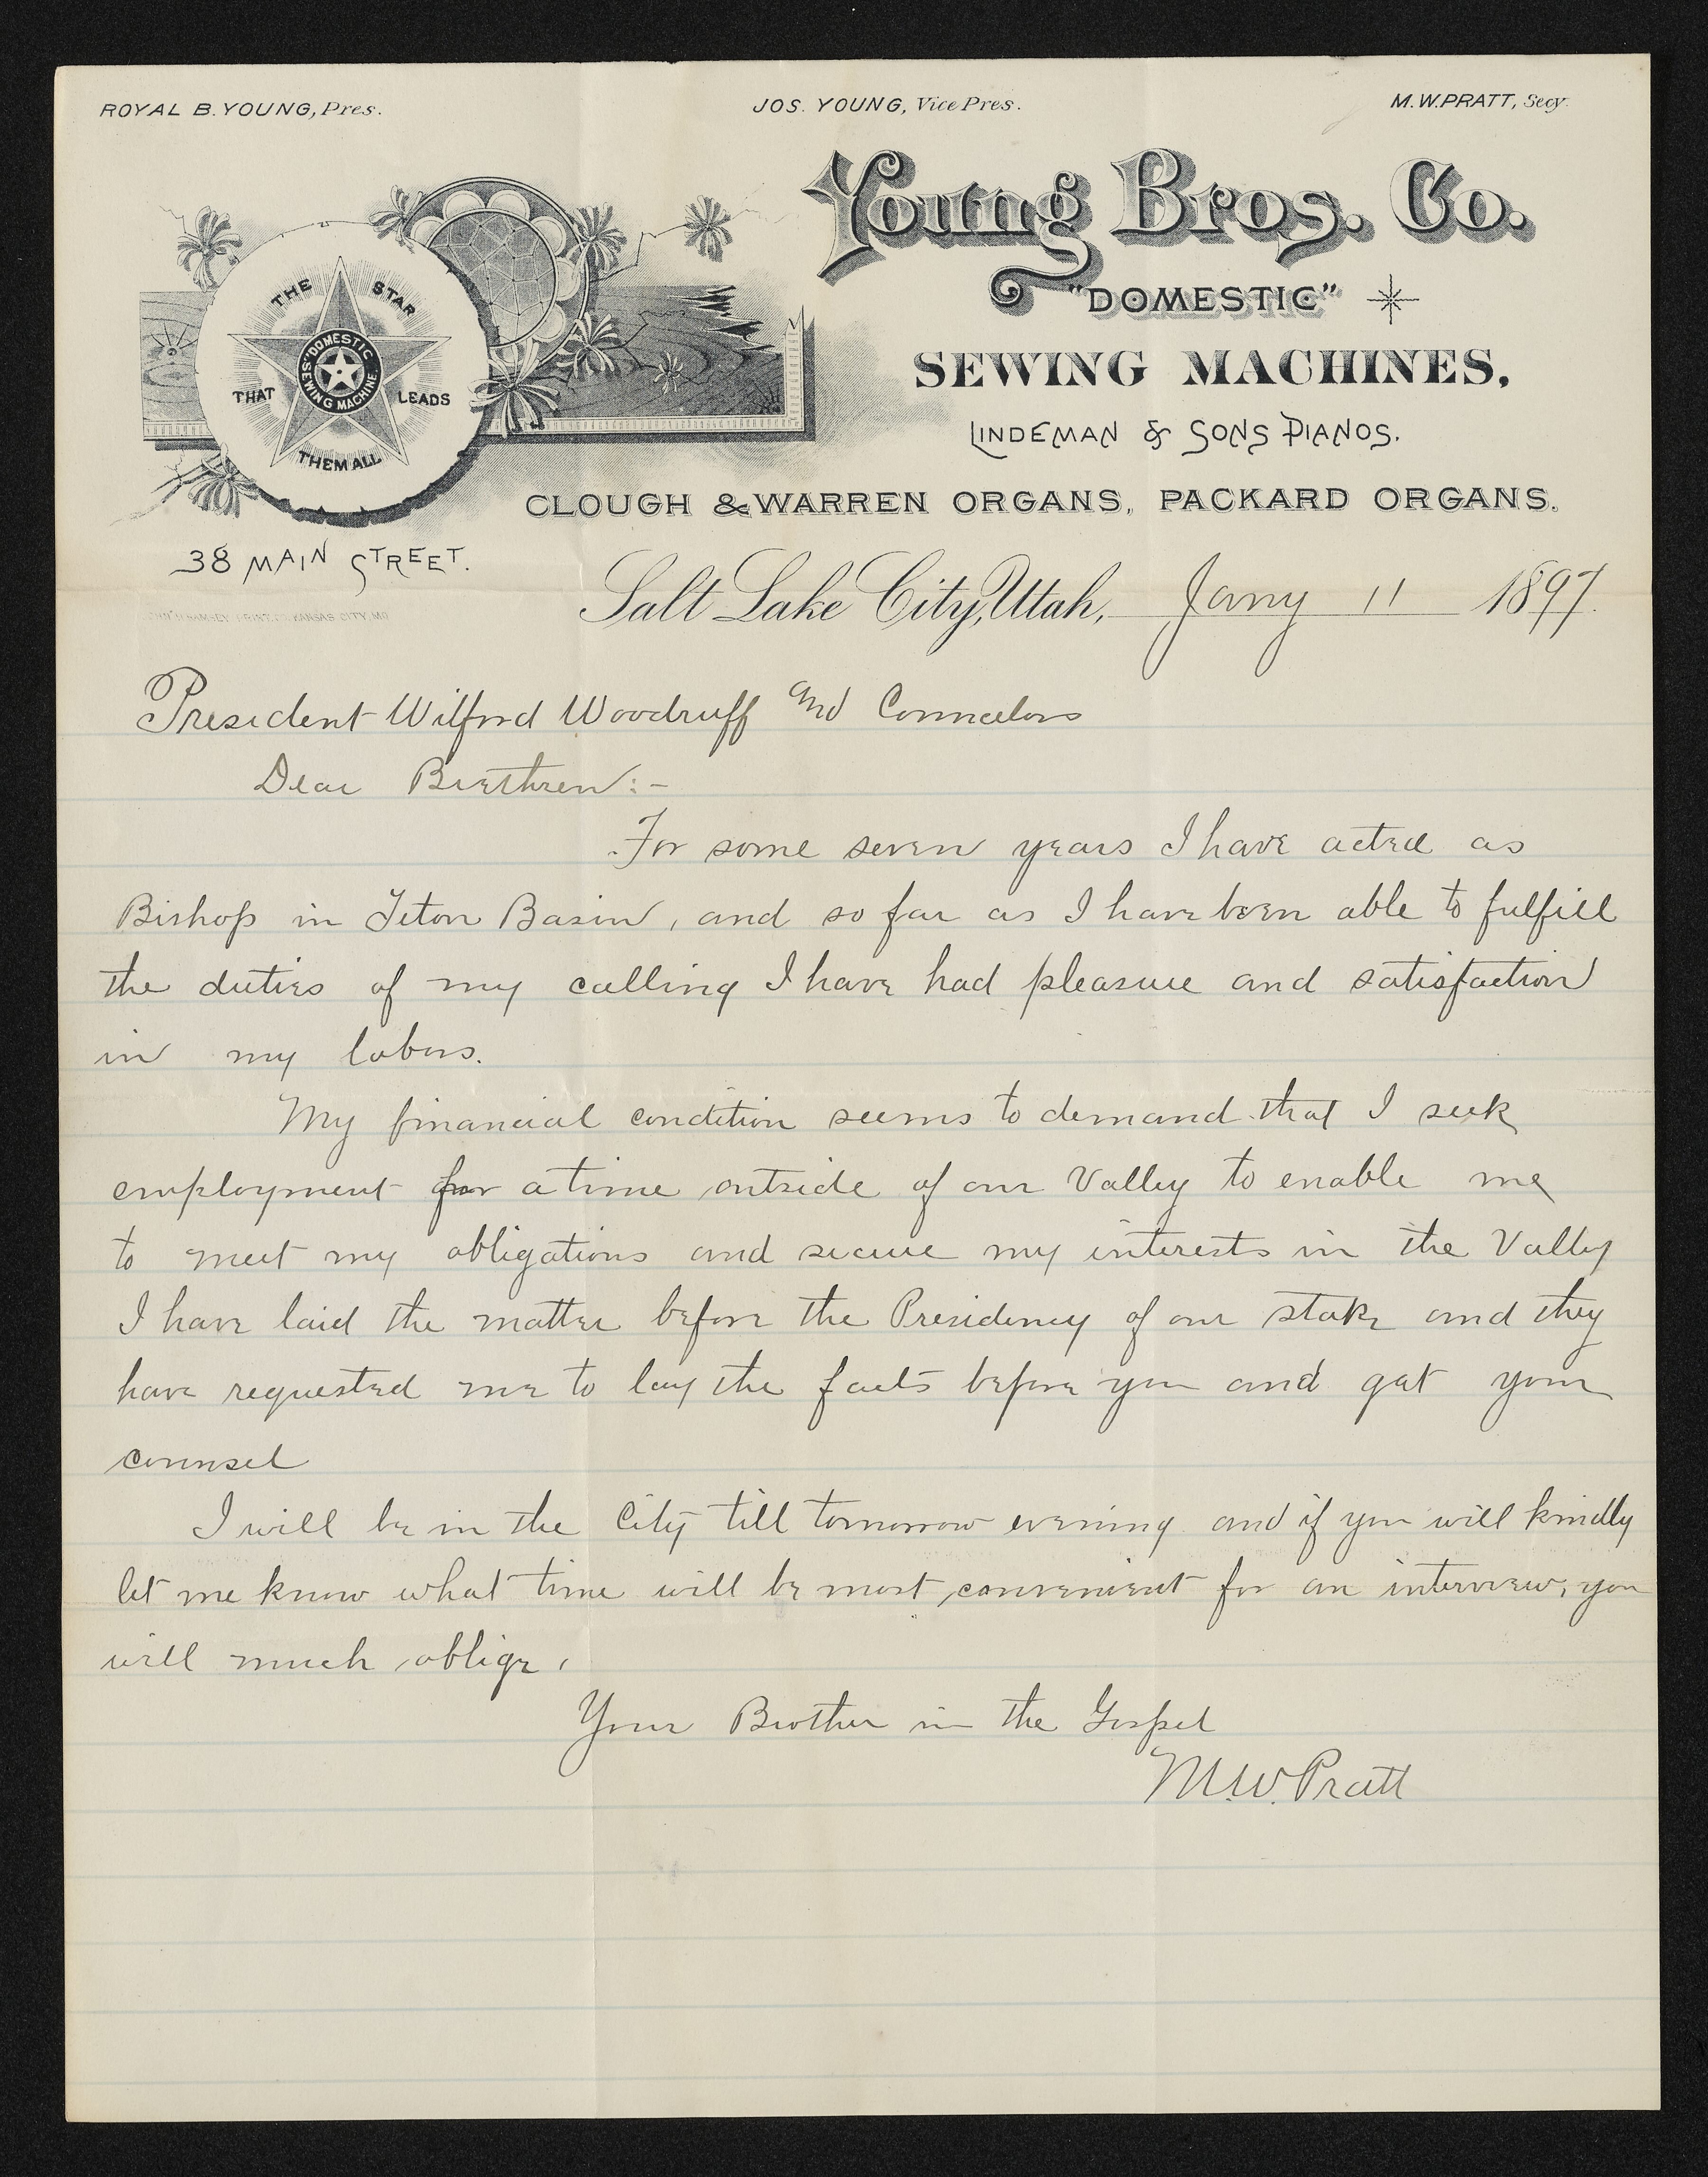 ROYAL B. YOUNG, Pres. JOS. YOUNG, Vice Pres. M.W. PRATT, Secy.
Young Bros. Co.
"DOMESTIC"
SEWING MACHINES,
LINDEMAN & SONS PIANOS.
CLOUGH & WARREN ORGANS, PACKARD ORGANS.
THE STAR
THAT LEADS
THEM ALL
"DOMESTIC" SEWING MACHINE
38 MAIN STREET.
KANSAS CITY, MO
Salt Lake City, Utah, Jany 11 1897.
President Wilford Woodruff and Councelors
Dear Brethren:-
For some seven years I have acted as
Bishop in Teton Basin, and so far as I have been able to fulfill
the duties of my calling I have had pleasure and satisfaction
in my labors.
My financial condition seems to demand that I seek
employment for a time outside of our Valley to enable me
to meet my obligations and secure my interests in the Valley
I have laid the matter before the Presidency of our stake and they
have requested me to lay the facts before you and get your
counsel
I will be in the City till tomorrow evening and if you will kindly
let me know what time will be most convenient for an interview, you
will much oblige,
Your Brother in the Gospel
M.W. Pratt